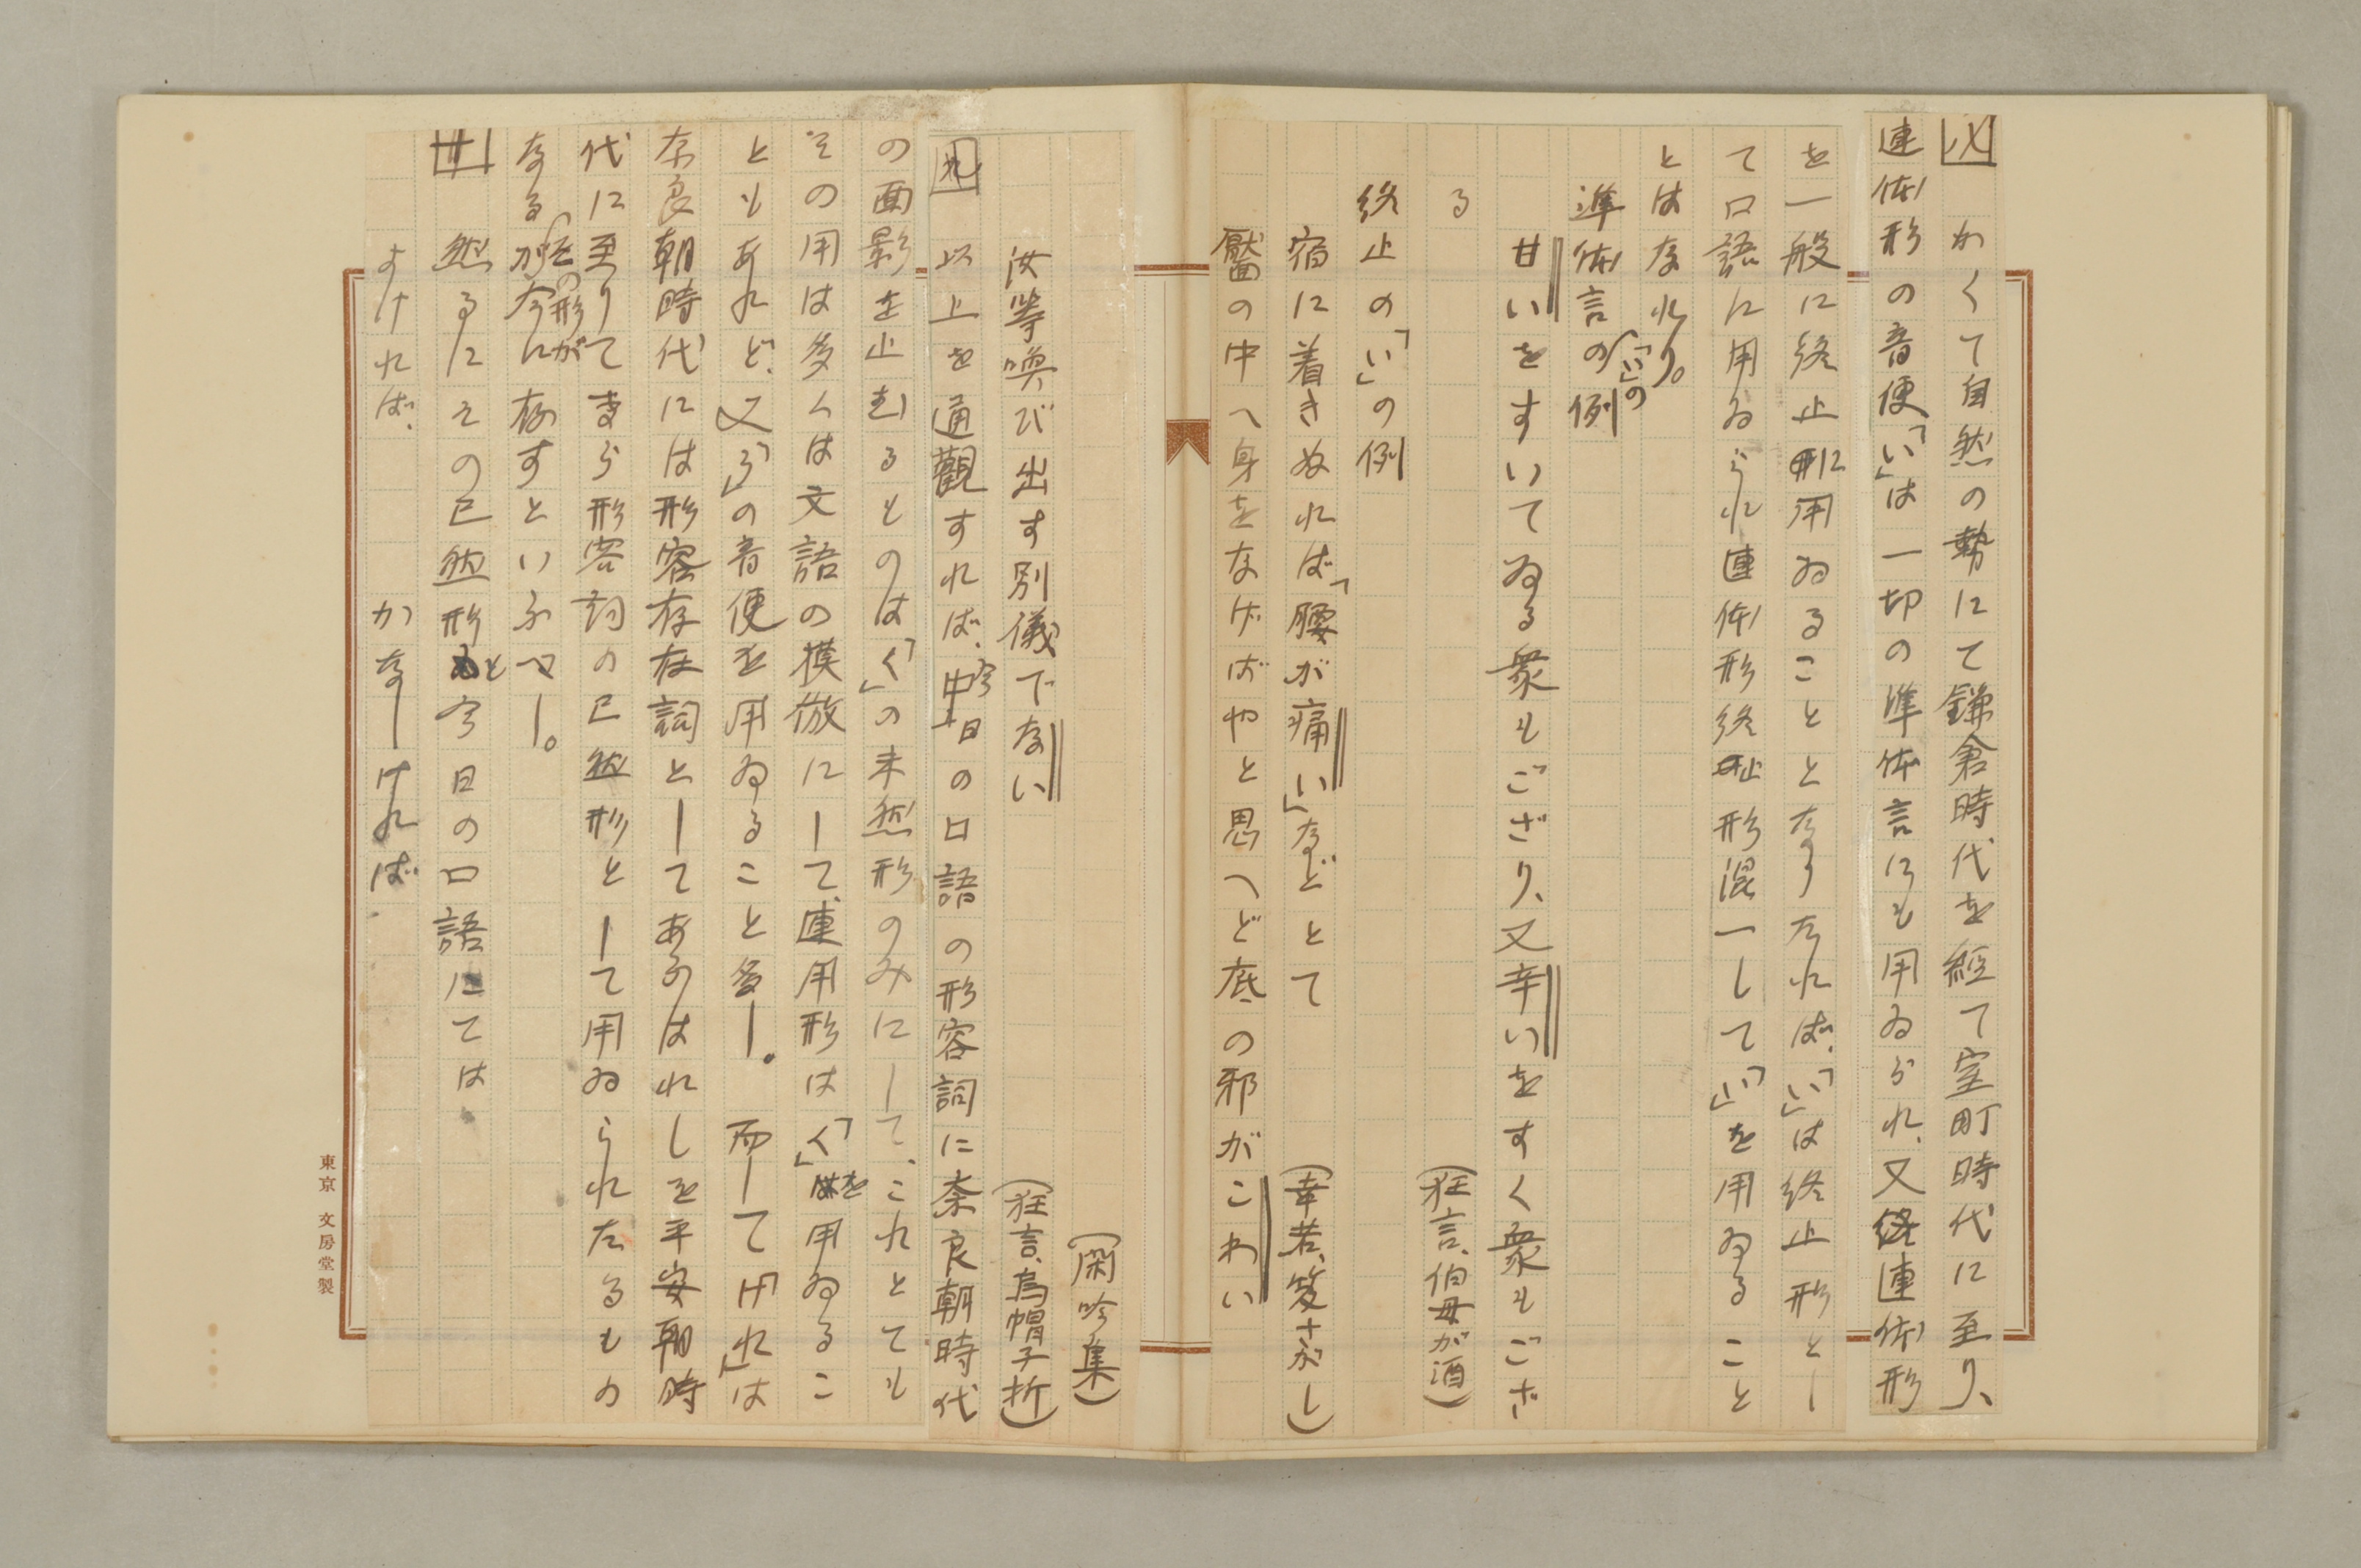 八 かくて自然の勢にて鎌倉時代を経て室町時代に至り、
連体形の音便「い」は一切の準体言にも用ゐられ、又連体形
を一般に終止形に用ゐることとなりたれば、「い」は終止形とし
て口語に用ゐられ連体形終止形混一して「い」を用ゐること
とはなれり。
準体言の「い」の例
甘いをすいてゐる衆もござり、又辛いをすく衆もござ
る
(狂言、伯母が酒)
終止の「い」の例
宿に着きぬれば「腰が痛い」などとて
(幸若、笈さがし)
靨の中へ身をなげばやと思へど底の邪がこわい
(閑吟集)
汝等喚び出す別儀でない
(狂言、烏帽子折)
九 以上を通観すれば、今日の口語の形容詞に奈良朝時代
の面影を止むるものは「く」の未然形のみにして、これとても
その用は多くは文語の摸倣にして、連用形は「く」を用ゐるこ
ともあれど、又「う」の音便を用ゐること多し。 而して「けれ」は
奈良朝時代には形容存在詞としてあらはれしを平安朝時
代に至りてまづ形容詞の已然形として用ゐられたるもの
なるがその形が今に存すといふべし。
廿 然るにその已然形もと今日の口語にては
よければ、 かなしければ
東京 文房堂製